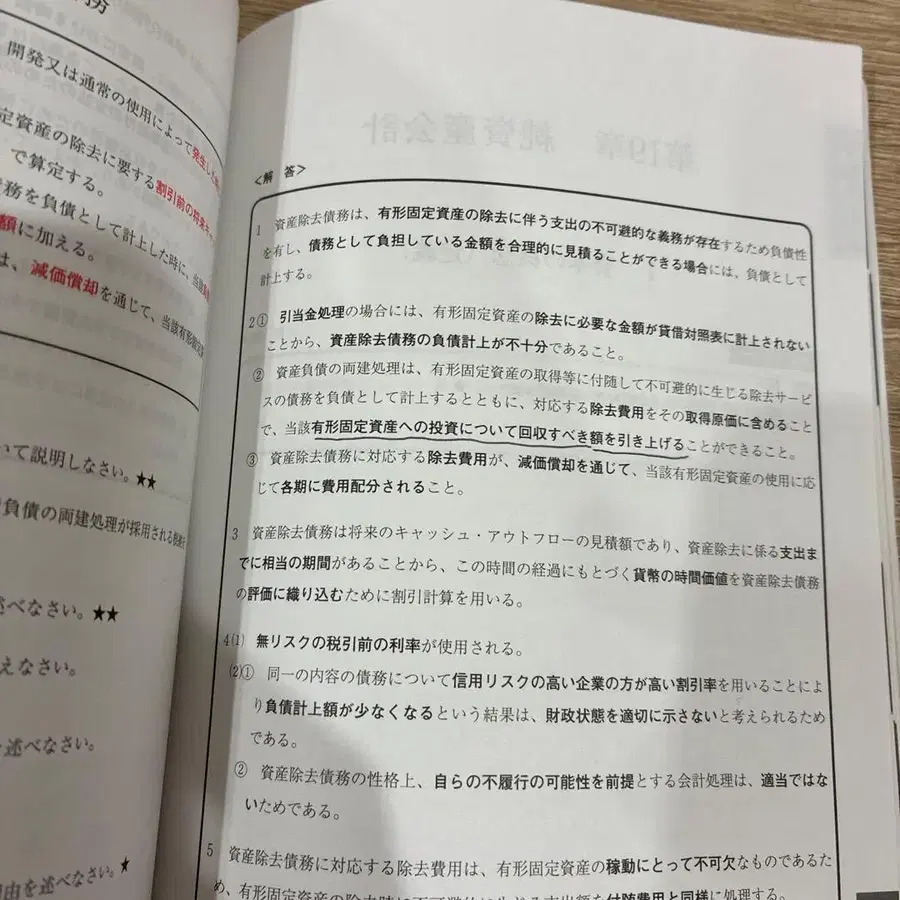 開発又は通常の使用によって発生した
定資産の除去に要する割引前の将来キャ
で算定する。
務を負債として計上した時に、当該
額に加える。
は、減価償却を通じて、当該有形固定
いて説明しなさい。★★
負債の両建処理が採用される根拠を
述べなさい。★★
えなさい。
を述べなさい。
由を述べなさい。★
第19章 純資産会計
<解 答>
1 資産除去債務は、有形固定資産の除去に伴う支出の不可避的な義務が存在するため負債性
を有し、債務として負担している金額を合理的に見積ることができる場合には、負債として
計上する。
2① 引当金処理の場合には、有形固定資産の除去に必要な金額が貸借対照表に計上されない
ことから、資産除去債務の負債計上が不十分であること。
② 資産負債の両建処理は、有形固定資産の取得等に付随して不可避的に生じる除去サービ
スの債務を負債として計上するとともに、対応する除去費用をその取得原価に含めること
で、当該有形固定資産への投資について回収すべき額を引き上げることができること。
③ 資産除去債務に対応する除去費用が、減価償却を通じて、当該有形固定資産の使用に応
じて各期に費用配分されること。
3 資産除去債務は将来のキャッシュ・アウトフローの見積額であり、資産除去に係る支出ま
でに相当の期間があることから、この時間の経過にもとづく貨幣の時間価値を資産除去債務
の評価に織り込むために割引計算を用いる。
4(1) 無リスクの税引前の利率が使用される。
(2)① 同一の内容の債務について信用リスクの高い企業の方が高い割引率を用いることによ
り負債計上額が少なくなるという結果は、財政状態を適切に示さないと考えられるため
である。
② 資産除去債務の性格上、自らの不履行の可能性を前提とする会計処理は、適当ではな
いためである。
5 資産除去債務に対応する除去費用は、有形固定資産の稼動にとって不可欠なものであるた
め、有形固定資産の取得時に不可避的に生じる支出額を付随費用と同様に処理する。